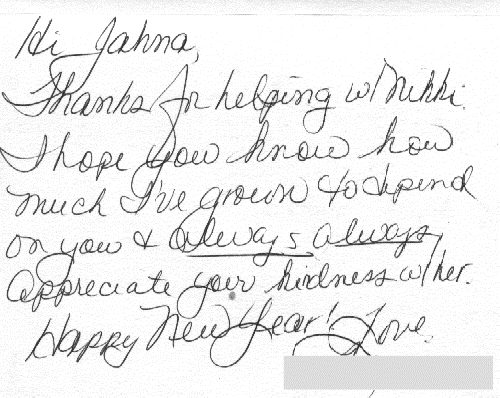 Hi Jahna,
Thanks for helping w/ Nikki.
I hope you know how
much I've grown to depend
on you & always always
appreciate your kindness w/ her.
Happy New Year! Love,